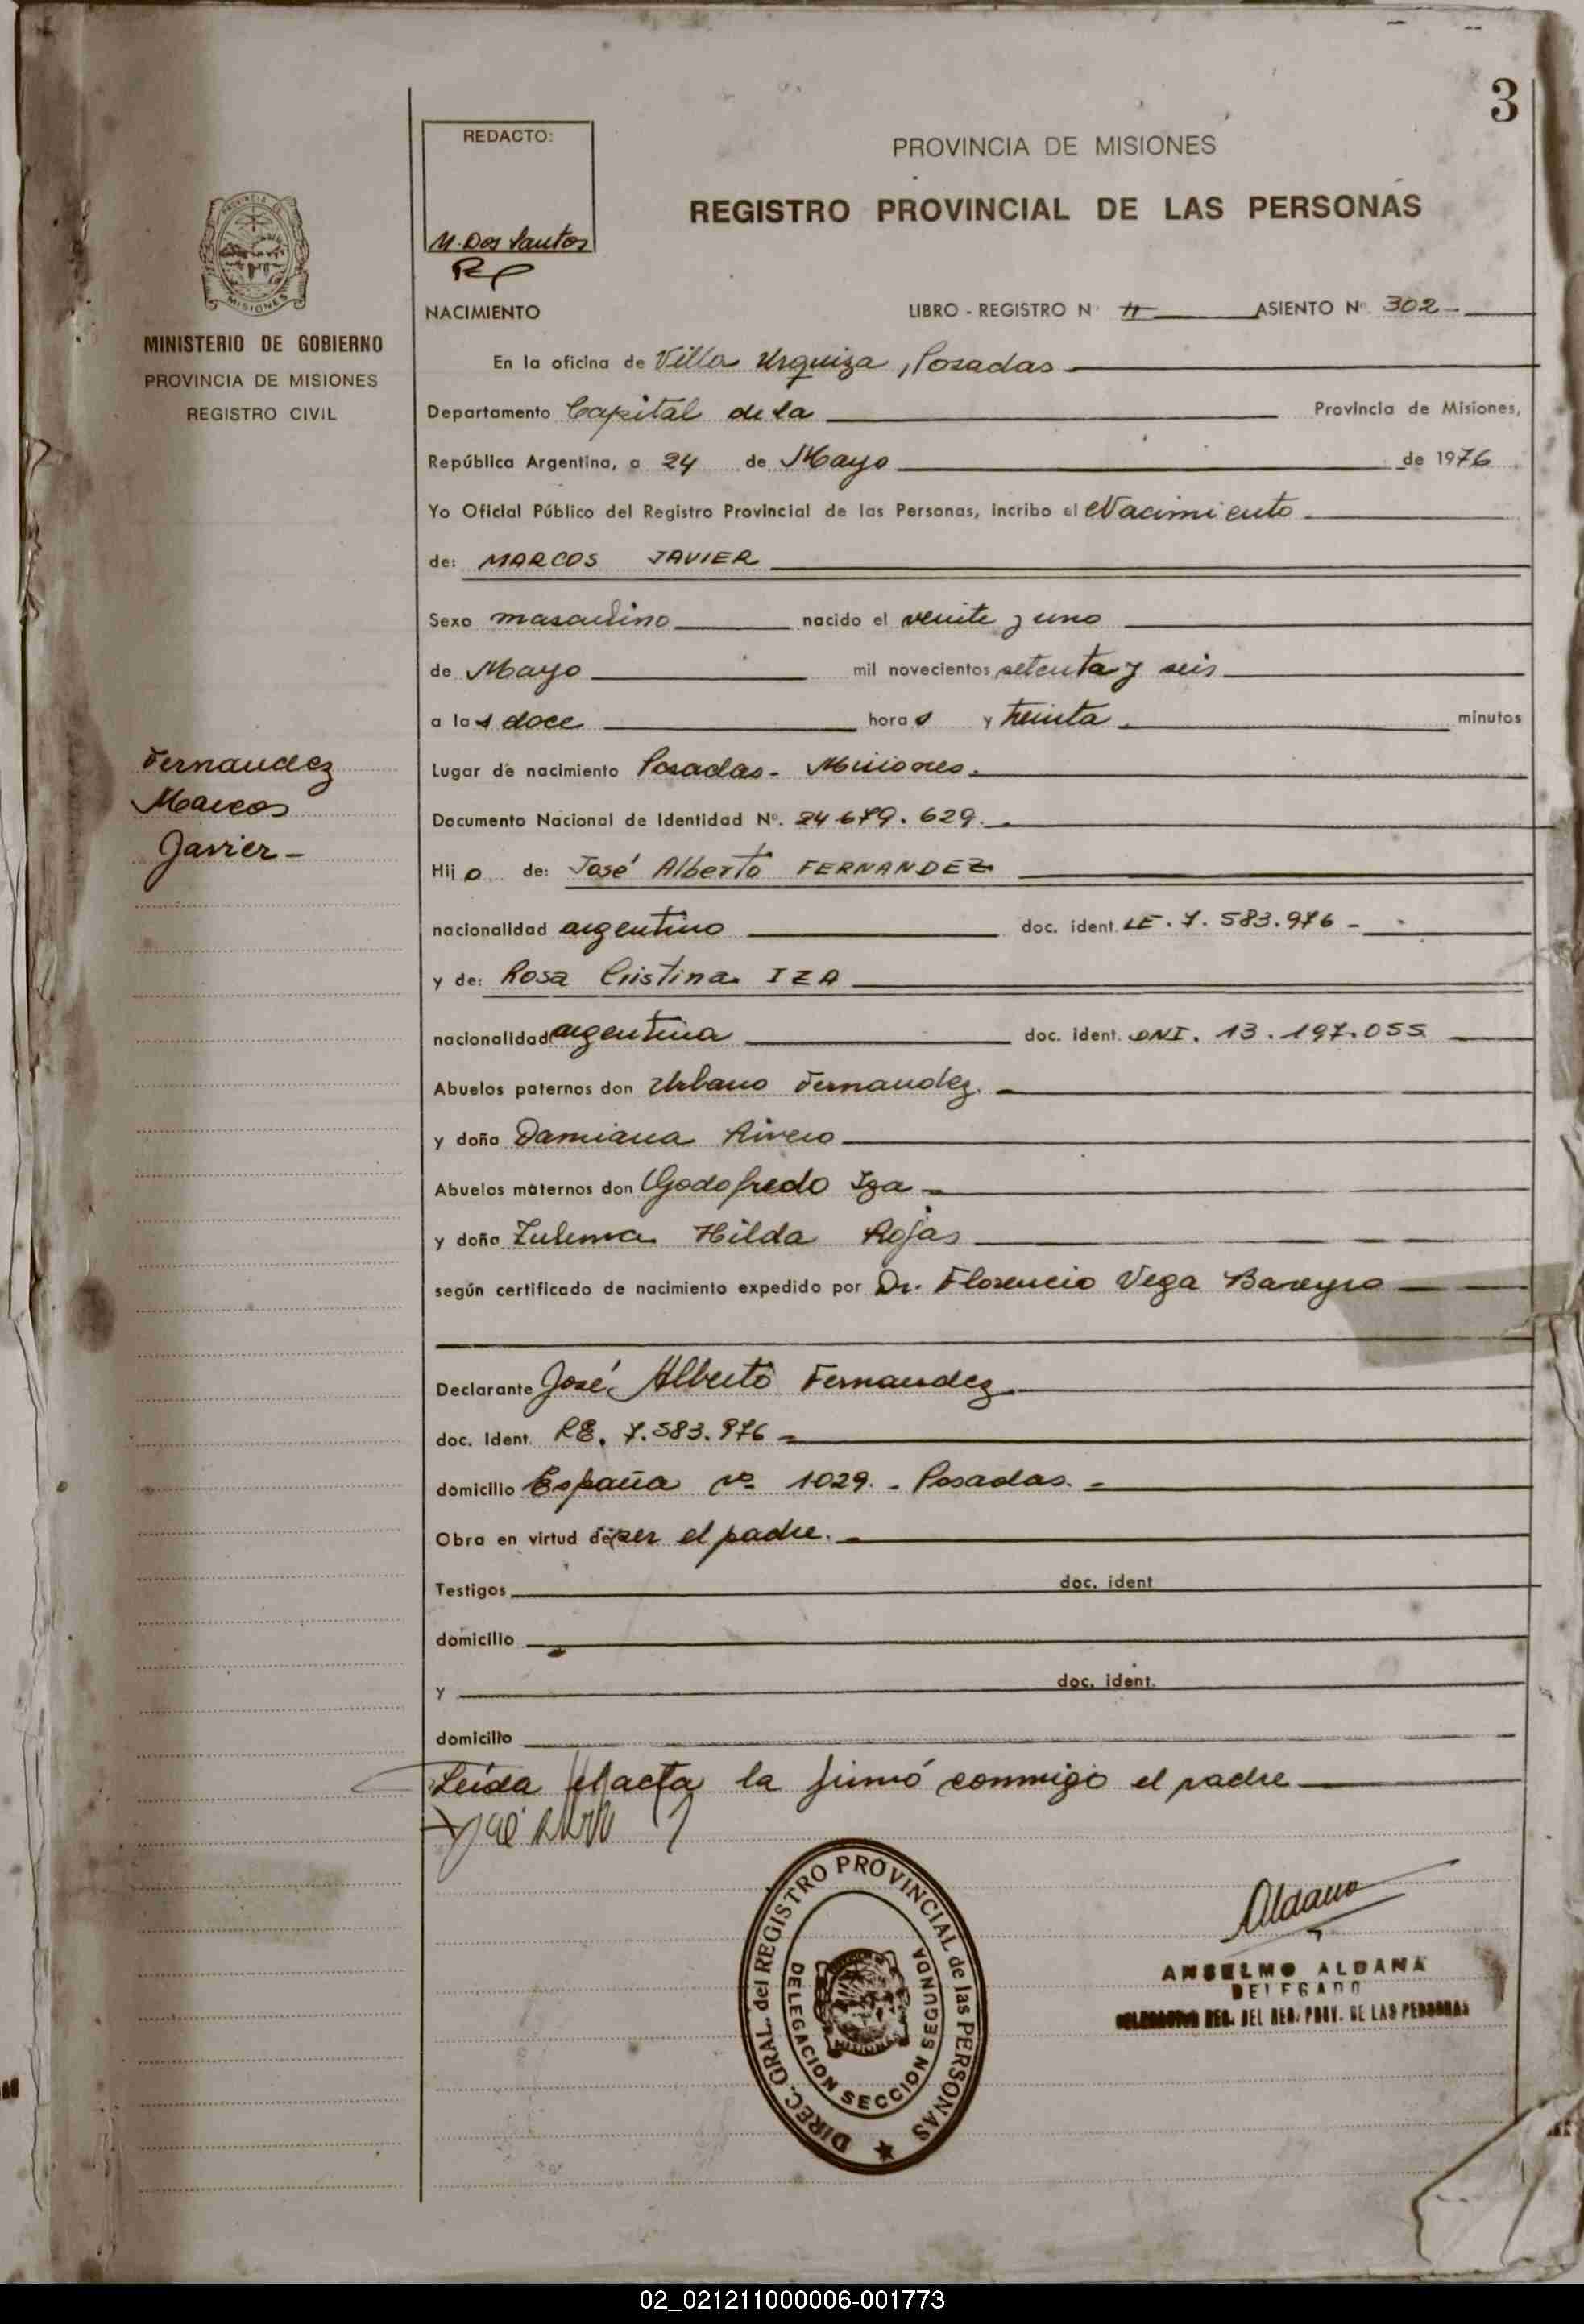 3
REDACTO:
M. Dos Santos
PROVINCIA DE MISIONES
REGISTRO PROVINCIAL DE LAS PERSONAS
PROVINCIA DE
MISIONES
MINISTERIO DE GOBIERNO
PROVINCIA DE MISIONES
REGISTRO CIVIL
NACIMIENTO LIBRO - REGISTRO N° II ASIENTO N° 302-
En la oficina de Villa Urquiza, Posadas-
Departamento Capital de la Provincia de Misiones,
República Argentina, a 24 de Mayo de 1976
Yo Oficial Público del Registro Provincial de las Personas, incribo el Nacimiento
de: MARCOS JAVIER
Sexo masculino nacido el veinte y uno
de Mayo mil novecientos setenta y seis
a las doce horas y treinta minutos
Fernandez
Marcos
Javier-
Lugar de nacimiento Posadas- Misiones.
Documento Nacional de Identidad N°. 24 679.629.
Hijo de: José Alberto FERNANDEZ
nacionalidad argentino doc. ident. LE. 7.583.976-
y de: Rosa Cristina IZA
nacionalidad argentina doc. ident. DNI. 13.197.055
Abuelos paternos don Urbano Fernandez.
y doña Damiana Rivero
Abuelos maternos don Godofredo Iza-
y doña Zulema Hilda Rojas
según certificado de nacimiento expedido por Dr. Florencio Vega Bareyro
Declarante José Alberto Fernandez
doc. Ident. LE. 7.583.976-
domicilio España N° 1029.- Posadas.-
Obra en virtud de ser el padre.-
Testigos doc. ident
domicilio
y doc. ident.
domicilio
Leida el acta la firmó conmigo el padre
DIREC. GRAL. del REGISTRO PROVINCIAL de las PERSONAS
DELEGACION SECCION SEGUNDA
Aldana
ANSELMO ALDANA
DELEGADO
REG. DEL REG. PROV. DE LAS PERSONAS
02_021211000006-001773